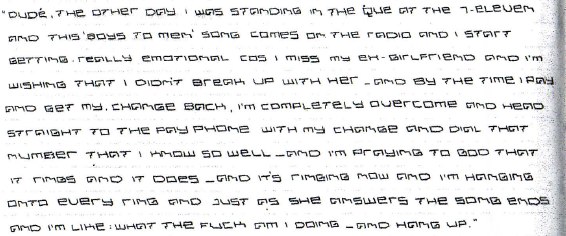 "DUDE, THE OTHER DAY I WAS STANDING IN THE QUE AT THE 7-ELEVEN
AND THIS 'BOYS TO MEN' SONG COMES ON THE RADIO AND I START
GETTING, REALLY EMOTIONAL COS I MISS MY EX-GIRLFRIEND AND I'M
WISHING THAT I DIDN'T BREAK UP WITH HER _AND BY THE TIME I PAY
AND GET MY, CHANGE BACK, I'M COMPLETELY OVERCOME AND HEAD
STRAIGHT TO THE PAY PHONE WITH MY CHANGE AND DIAL THAT
NUMBER THAT I KNOW SO WELL _AND I'M PRAYING TO GOD THAT
IT RINGS AND IT DOES _AND IT'S RINGING NOW AND I'M HANGING
ONTO EVERY RING AND JUST AS SHE ANSWERS THE SONG ENDS
AND I'M LIKE: WHAT THE FUCK AM I DOING _AND HANG UP."